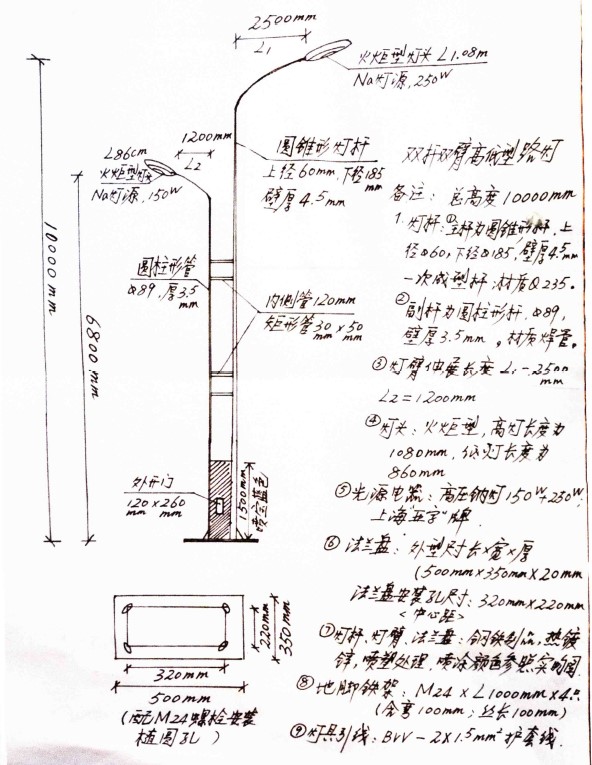 2500mm
L1
火炬型灯头 L1.08m
Na灯源,250W
L86cm
火炬型灯头
Na灯源,150W
1200mm
L2
圆锥形灯杆
上径60mm,下径185mm
壁厚4.5mm
10000mm
6800mm
圆柱形管
Φ89,厚3.5mm
内侧管120mm
矩形管30mm×50mm
外开门
120mm×260mm
1500mm
喷宝蓝色
320mm
500mm
220mm
350mm
(配M24螺栓安装
椭圆孔)
双杆双臂高低型路灯
备注: 总高度10000mm
1.灯杆:①主杆为圆锥形杆.上
径Φ60,下径Φ185,壁厚4.5mm
一次成型杆:材质Q235。
②副杆为圆柱形杆.Φ89,
壁厚3.5mm。材质焊管。
③灯臂伸展长度 L1-2500mm
L2=1200mm
④灯头:火炬型,高灯长度为
1080mm,低灯长度为
860mm
⑤光源电器:高压钠灯150W+250W
上海"亚字"牌.
⑥法兰盘:外型尺寸长×宽×厚
(500mm×350mm×20mm
法兰盘安装孔尺寸:320mm×220mm
<中心距>
⑦灯杆、灯臂、法兰盘:钢铁制品,热镀
锌,喷塑处理.喷涂颜色参照实物图
⑧地脚铁架:M24×L1000mm×4只
(含弯100mm;丝长100mm)
⑨灯具引线:BVV-2×1.5mm²护套线.